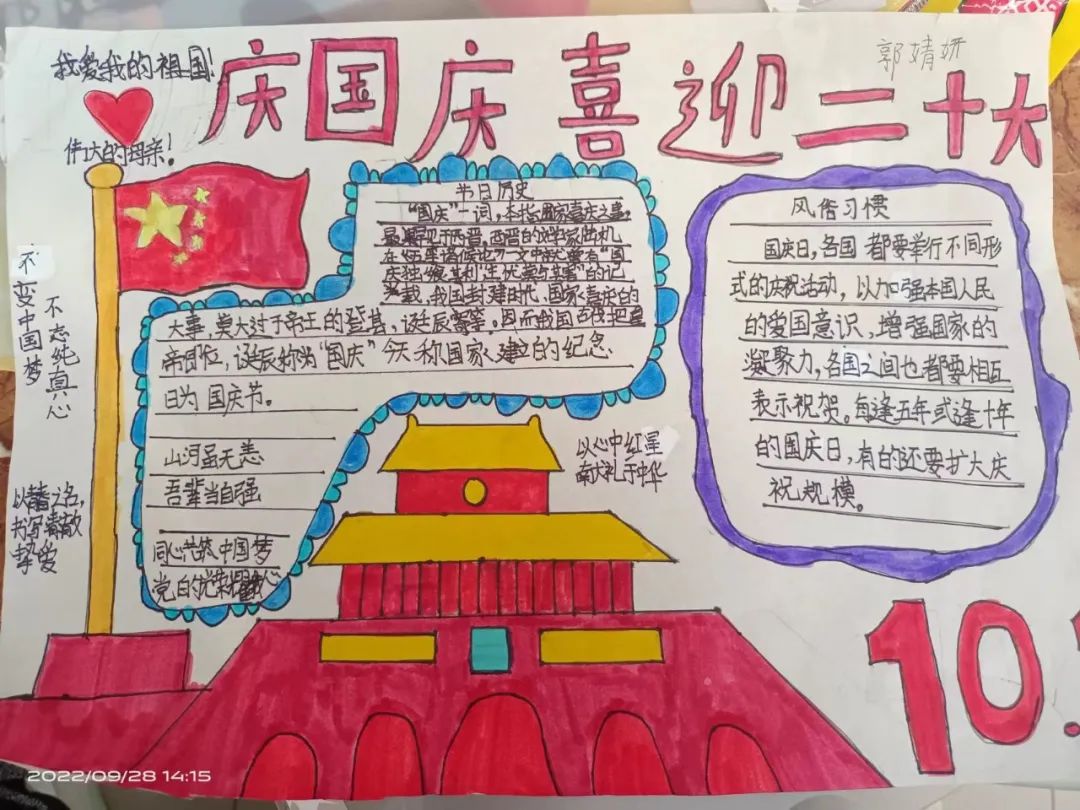 我爱我的祖国!
伟大的母亲!
庆国庆喜迎二十大
郭婧妍
不变中国梦
不忘纯真心
以青春之名,
书写奉献
挚爱
节日历史
“国庆”一词,本指国家喜庆之事,
最早见于西晋,西晋的文学家陆机
在《五等诸侯论》一文中就曾有“国
庆独飨其利,主忧莫与其害”的记
载,我国封建时代、国家喜庆的
大事,莫大过于帝王的登基、诞辰等等。因而我国古代把皇
帝即位,诞辰称为“国庆”今天称国家建立的纪念
日为国庆节。
山河虽无恙
吾辈当自强
同心共筑中国梦
以心中红星
南大礼于中华
风俗习惯
国庆日,各国都要举行不同形
式的庆祝活动,以加强本国人民
的爱国意识,增强国家的
凝聚力,各国之间也都要相互
表示祝贺。每逢五年或逢十年
的国庆日,有的还要扩大庆
祝规模。
10.
2022/09/28 14:15